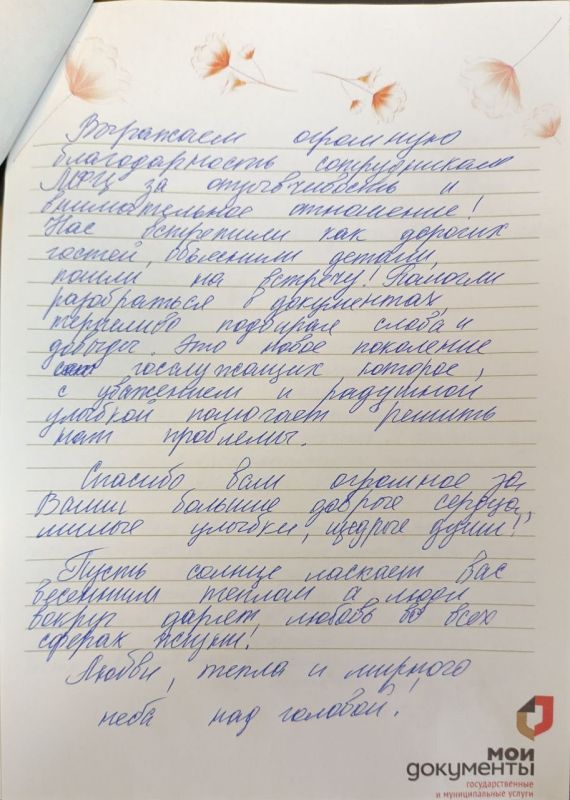 Выражаем огромную
благодарность сотрудникам
МФЦ за отзывчивость и
внимательное отношение!
Нас встретили как дорогих
гостей, объяснили детали,
пошли на встречу! Помогли
разобраться в документах,
терпеливо подбирая слова и
доводы. Это новое поколение
госслужащих которое,
с уважением и радушной
улыбкой помогает решить
наши проблемы.
Спасибо вам огромное за
Ваши большие добрые сердца,
милые улыбки, щедрые души!
Пусть солнце ласкает Вас
весенним теплом а люди
вокруг дарят любовь во всех
сферах жизни!
Любви, тепла и мирного
неба над головой!
мои
документы
государственные
и муниципальные услуги